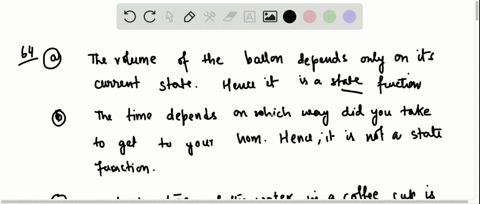 64 (a) The volume of the ballon depends only on it's
current state. Hence it is a state fuction
(b) The time depends on which way did you take
to get to your hom. Hence, it is not a state
function.
water in a coffee cup is